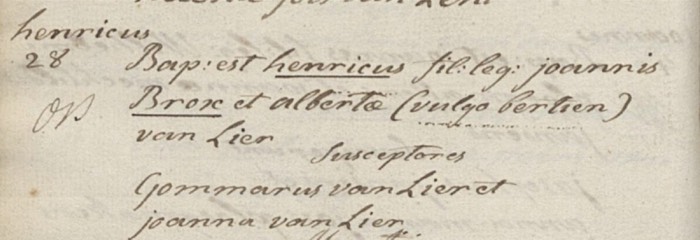 van Lier
henricus
28 Bap: est henricus fil: leg: joannis
Brox et albertæ (vulgo bertien)
van Lier
Susceptores
Gommarus van Lier et
joanna van Lier